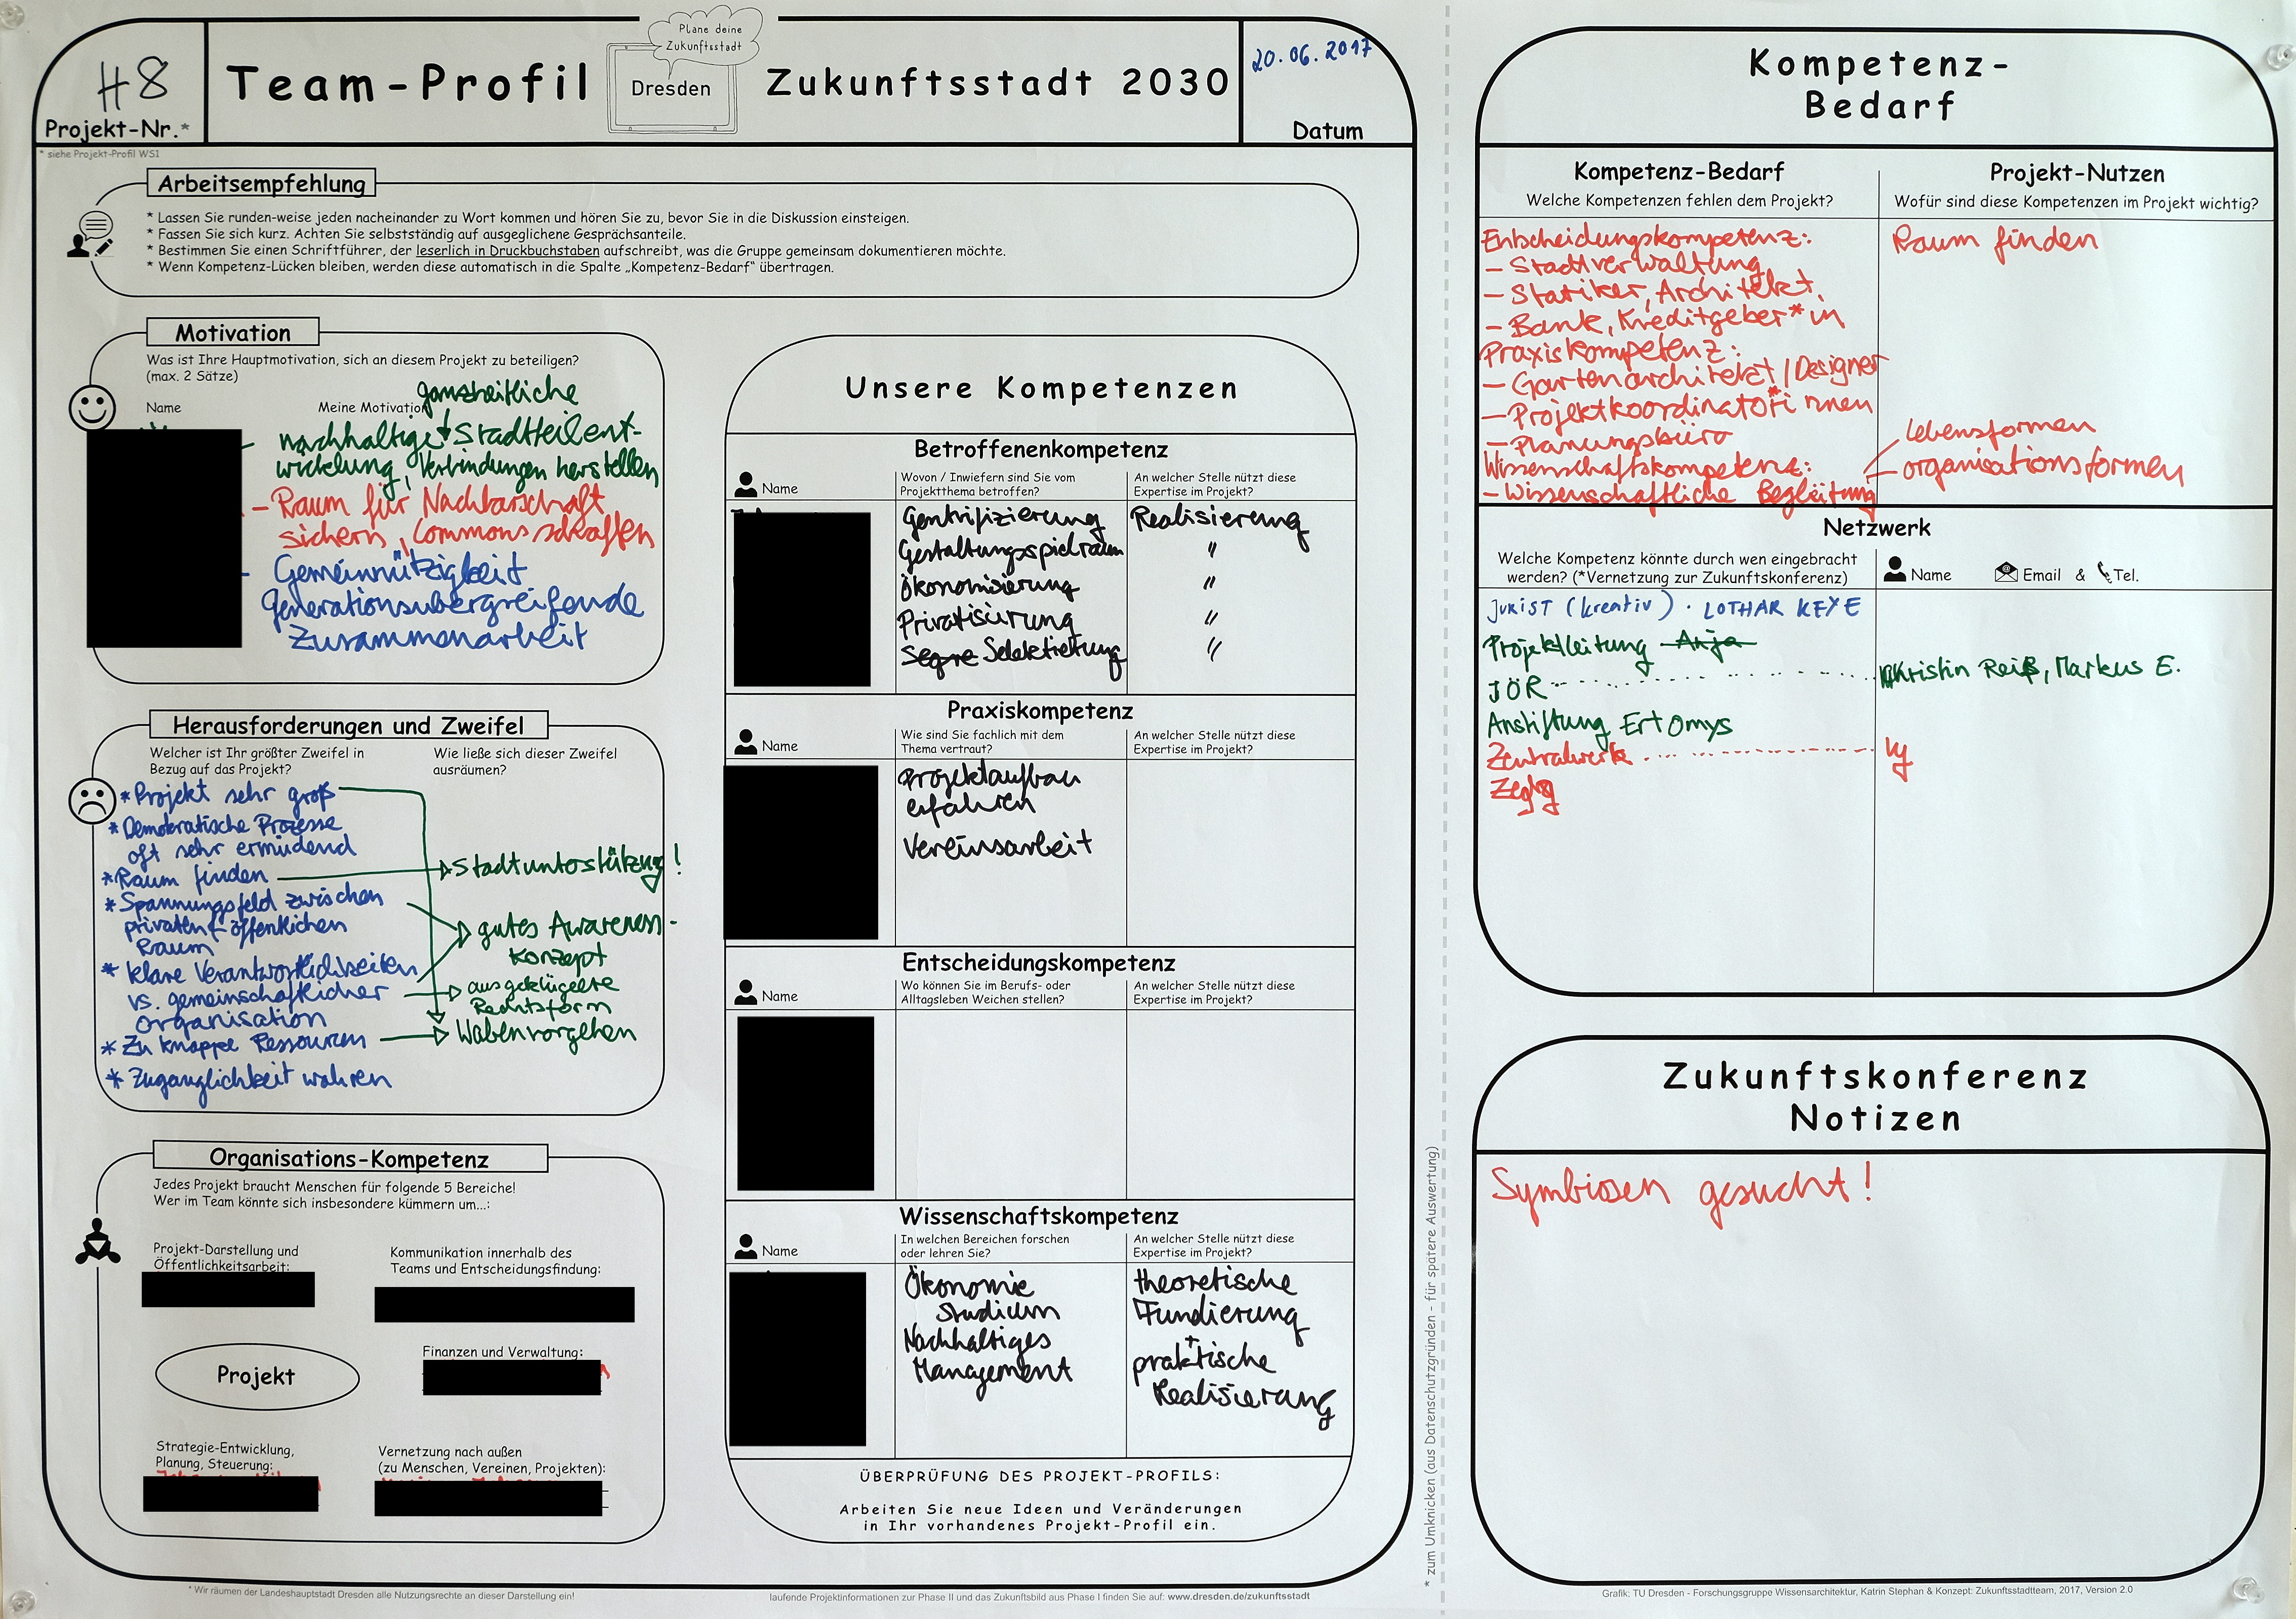 H8
Projekt-Nr.*
* siehe Projekt-Profil WS1
Team-Profil
Plane deine
Zukunftsstadt
Dresden
Zukunftsstadt 2030
20.06.2017
Datum
Arbeitsempfehlung
* Lassen Sie runden-weise jeden nacheinander zu Wort kommen und hören Sie zu, bevor Sie in die Diskussion einsteigen.
* Fassen Sie sich kurz. Achten Sie selbstständig auf ausgeglichene Gesprächsanteile.
* Bestimmen Sie einen Schriftführer, der leserlich in Druckbuchstaben aufschreibt, was die Gruppe gemeinsam dokumentieren möchte.
* Wenn Kompetenz-Lücken bleiben, werden diese automatisch in die Spalte „Kompetenz-Bedarf" übertragen.
Motivation
Was ist Ihre Hauptmotivation, sich an diesem Projekt zu beteiligen?
(max. 2 Sätze)
Name
Meine Motivation
ganzheitliche
nachhaltige Stadtteilent-
wicklung, Verbindungen herstellen
- Raum für Nachbarschaft
sichern, Commons schaffen
- Gemeinnützigkeit
generationsübergreifende
Zusammenarbeit
Herausforderungen und Zweifel
Welcher ist Ihr größter Zweifel in
Bezug auf das Projekt?
Wie ließe sich dieser Zweifel
ausräumen?
* Projekt sehr groß
* Demokratische Prozesse
oft sehr ermüdend
* Raum finden
* Spannungsfeld zwischen
privaten + öffentlichen
Raum
* klare Verantwortlichkeiten
vs. gemeinschaftlicher
Organisation
* Zu knappe Ressourcen
* Zugänglichkeit wahren
Stadtunterstützung!
gutes Awareness-
Konzept
ausgeklügelte
Rechtsform
Wabenvorgehen
Organisations-Kompetenz
Jedes Projekt braucht Menschen für folgende 5 Bereiche!
Wer im Team könnte sich insbesondere kümmern um...:
Projekt-Darstellung und
Öffentlichkeitsarbeit:
Kommunikation innerhalb des
Teams und Entscheidungsfindung:
Projekt
Finanzen und Verwaltung:
Strategie-Entwicklung,
Planung, Steuerung:
Vernetzung nach außen
(zu Menschen, Vereinen, Projekten):
Unsere Kompetenzen
Betroffenenkompetenz
Name
Wovon / Inwiefern sind Sie vom
Projektthema betroffen?
An welcher Stelle nützt diese
Expertise im Projekt?
Gentrifizierung Realisierung
Gestaltungsspielraum "
Ökonomisierung "
Privatisierung "
Segre Selektierung "
Praxiskompetenz
Name
Wie sind Sie fachlich mit dem
Thema vertraut?
An welcher Stelle nützt diese
Expertise im Projekt?
Projektaufbau
erfahren
Vereinsarbeit
Entscheidungskompetenz
Name
Wo können Sie im Berufs- oder
Alltagsleben Weichen stellen?
An welcher Stelle nützt diese
Expertise im Projekt?
Wissenschaftskompetenz
Name
In welchen Bereichen forschen
oder lehren Sie?
An welcher Stelle nützt diese
Expertise im Projekt?
Ökonomie
Studium
Nachhaltiges
Management
theoretische
Fundierung
+
praktische
Realisierung
ÜBERPRÜFUNG DES PROJEKT-PROFILS:
Arbeiten Sie neue Ideen und Veränderungen
in Ihr vorhandenes Projekt-Profil ein.
* Wir räumen der Landeshauptstadt Dresden alle Nutzungsrechte an dieser Darstellung ein!
laufende Projektinformationen zur Phase II und das Zukunftsbild aus Phase I finden Sie auf: www.dresden.de/zukunftsstadt
* zum Umknicken (aus Datenschutzgründen - für spätere Auswertung)
Kompetenz-
Bedarf
Kompetenz-Bedarf
Welche Kompetenzen fehlen dem Projekt?
Projekt-Nutzen
Wofür sind diese Kompetenzen im Projekt wichtig?
Entscheidungskompetenz:
- Stadtverwaltung
- Statiker, Architekt,
- Bank, Kreditgeber*in
Praxiskompetenz:
- Gartenarchitekt / Designer
- Projektkoordinator*innen
- Planungsbüro
Wissenschaftskompetenz:
- Wissenschaftliche Begleitung
Raum finden
Lebensformen
organisationsformen
Netzwerk
Welche Kompetenz könnte durch wen eingebracht
werden? (*Vernetzung zur Zukunftskonferenz)
Name Email & Tel.
JURIST (kreativ) · LOTHAR KEYE
Projektleitung Anja
JÖR Kristin Reiß, Markus E.
Anstiftung Ertomys
Zentralwerk
Zukunftskonferenz
Notizen
Symbiosen gesucht!
Grafik: TU Dresden - Forschungsgruppe Wissensarchitektur, Katrin Stephan & Konzept: Zukunftsstadtteam, 2017, Version 2.0